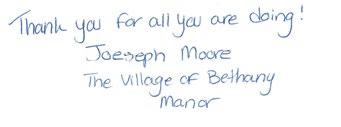 Thank you for all you are doing!
Joeseph Moore
The Village of Bethany
Manor